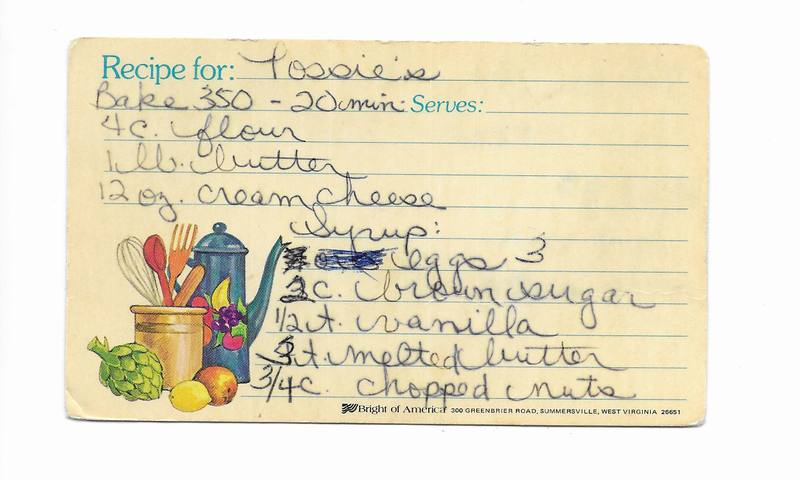 Recipe for: Tossie's
Bake 350 - 20 min. Serves:
4 c. flour
1 lb. butter
12 oz. cream cheese
Syrup:
eggs 3
c. brown sugar
1/2 t. vanilla
t. melted butter
3/4 c. chopped nuts
Bright of America 300 GREENBRIER ROAD, SUMMERSVILLE, WEST VIRGINIA 26651